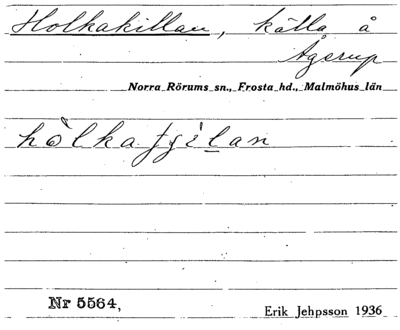 Holkakillan, källa å
Ågerup
Norra Rörums sn., Frosta hd., Malmöhus län
hòlkatjìlan
Nr 5564,
Erik Jehpsson 1936